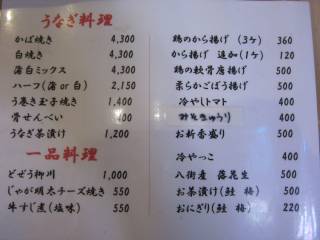 うなぎ料理
かば焼き 4,300
白焼き 4,300
蒲白ミックス 4,300
ハーフ(蒲 or 白) 2,150
う巻き玉子焼き 1,400
骨せんべい 400
うなぎ茶漬け 1,200
一品料理
どぜう柳川 1,000
じゃが明太チーズ焼き 550
牛すじ煮(塩味) 550
鶏のから揚げ (3ヶ) 360
から揚げ 追加(1ヶ) 120
鶏の軟骨唐揚げ 500
柔らかごぼう揚げ 500
冷やしトマト 400
みそきゅうり 400
お新香盛り 500
冷やっこ 400
八街産 落花生 500
お茶漬け(鮭 梅) 500
おにぎり(鮭 梅) 220